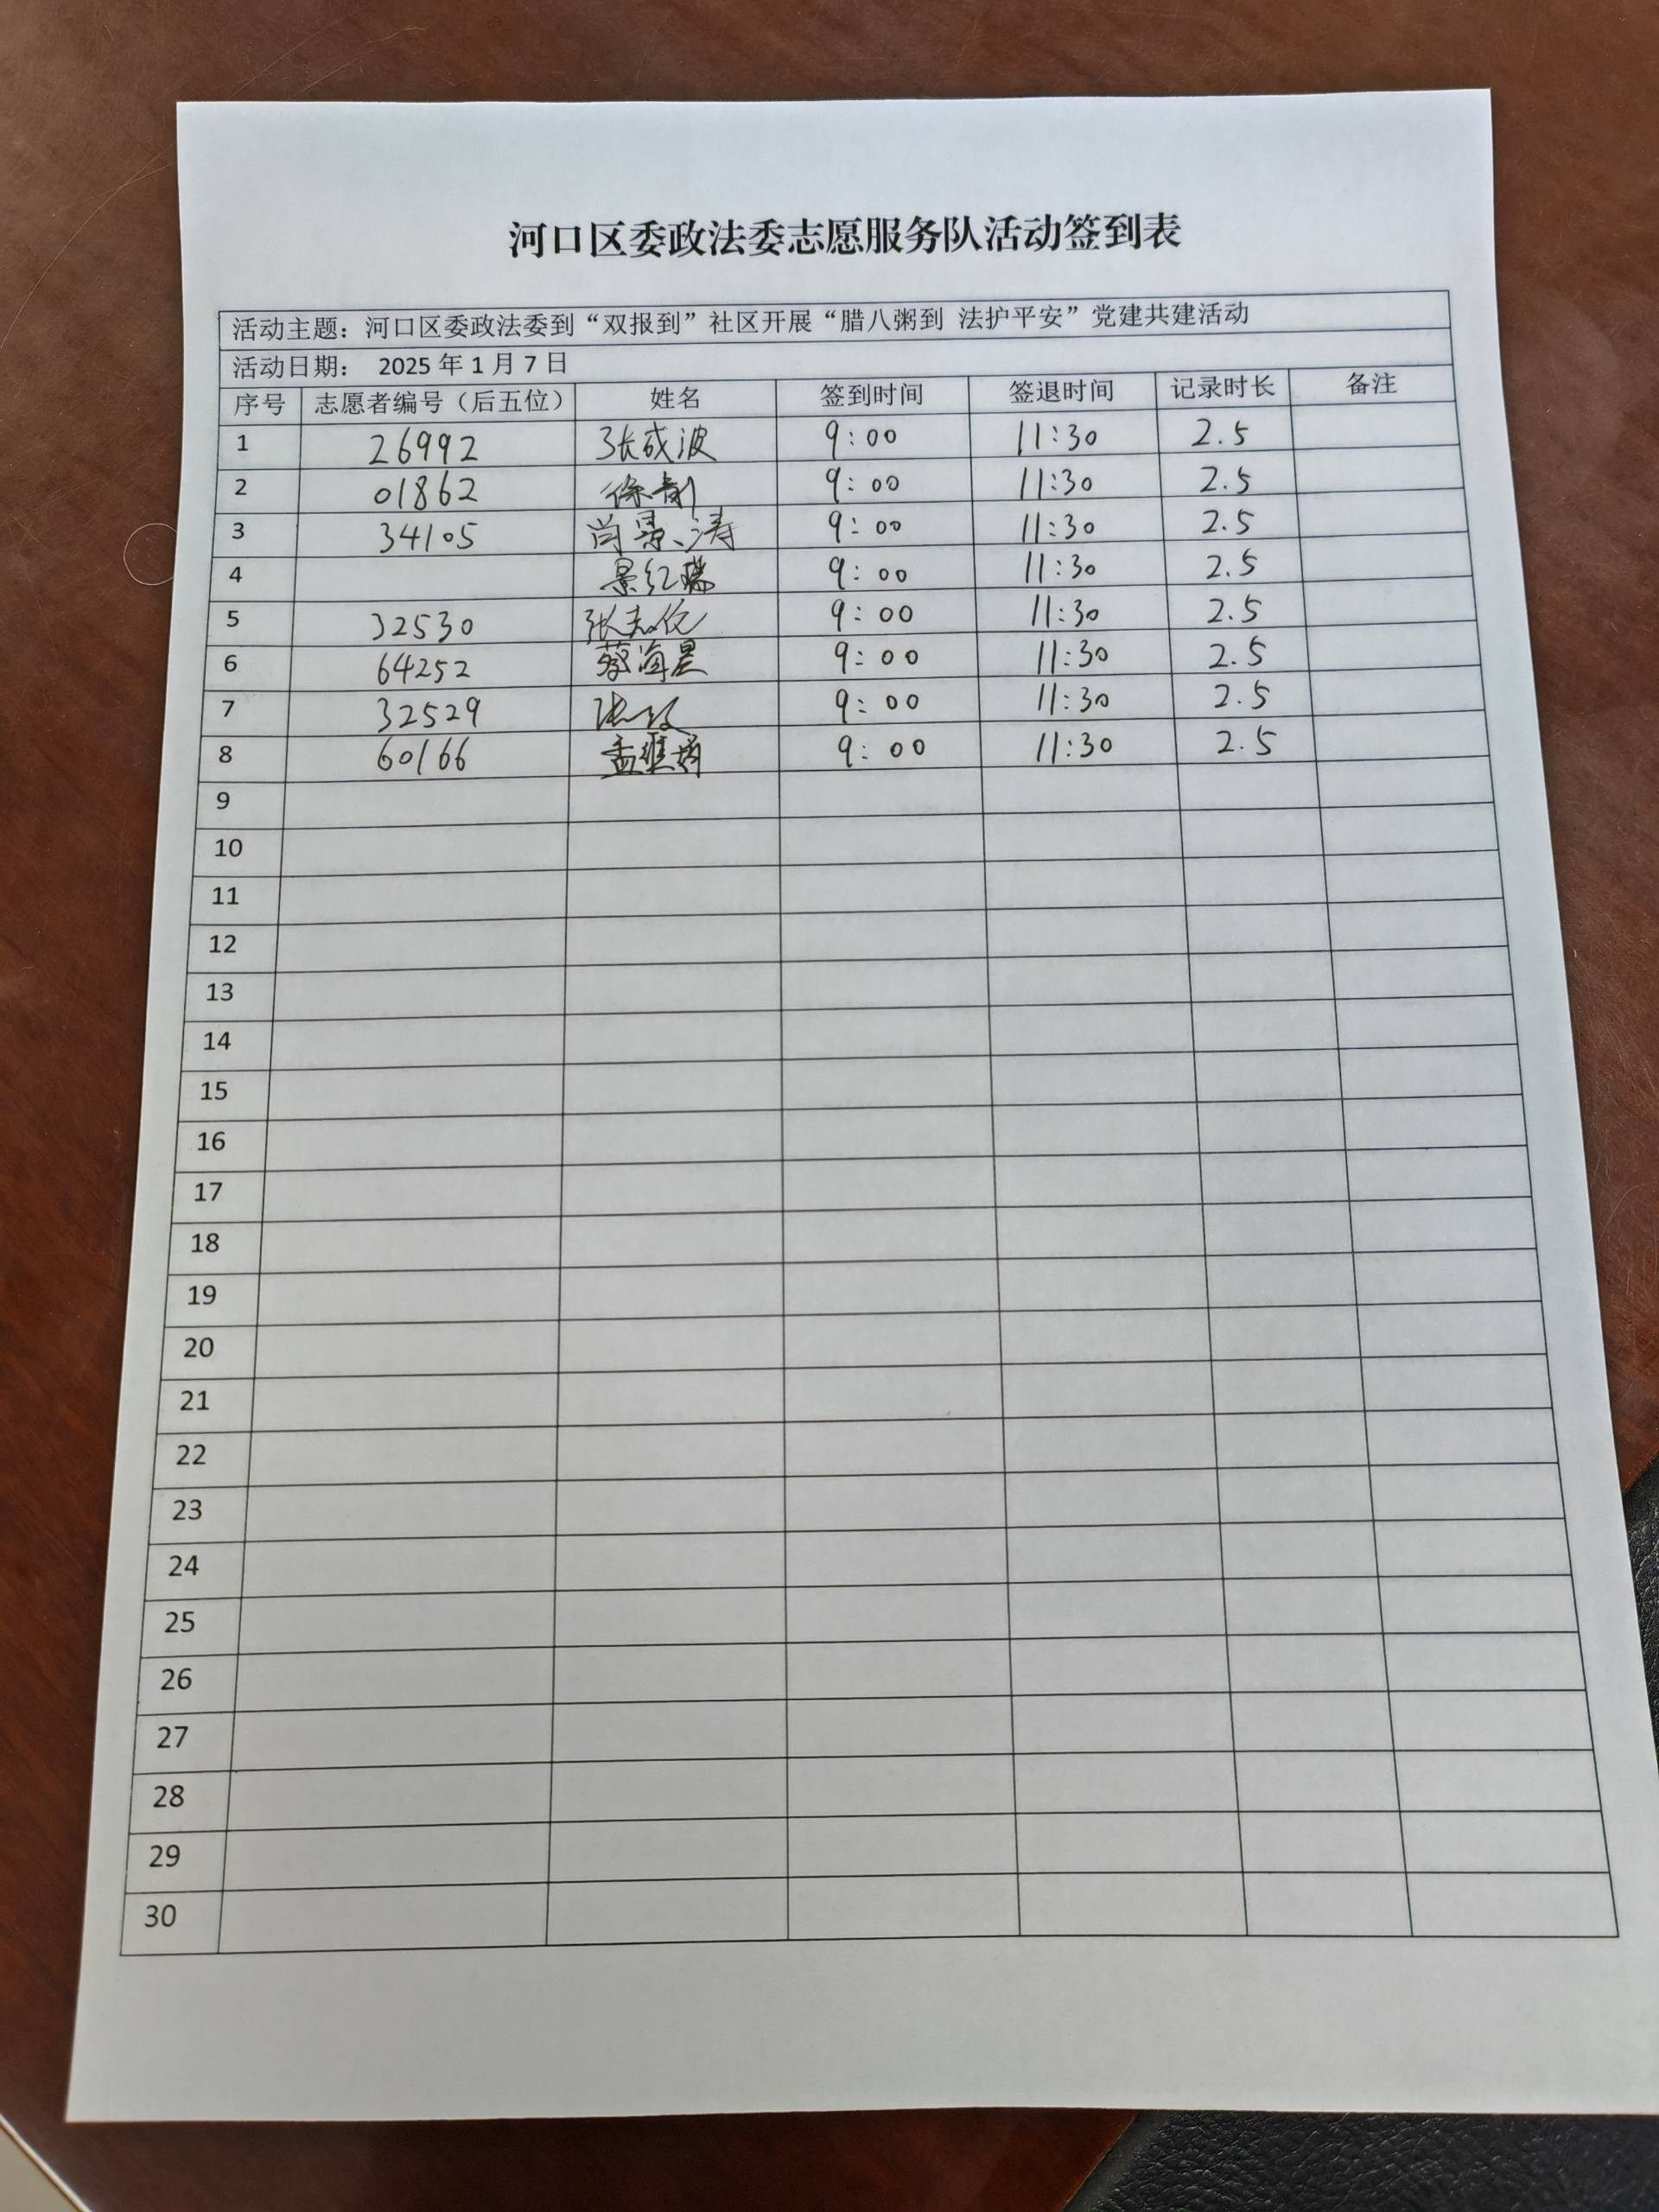 河口区委政法委志愿服务队活动签到表
活动主题：河口区委政法委到“双报到”社区开展“腊八粥到 法护平安”党建共建活动
活动日期： 2025 年 1 月 7 日
序号 志愿者编号（后五位） 姓名 签到时间 签退时间 记录时长 备注
1 26992 张成波 9:00 11:30 2.5
2 01862 徐 9:00 11:30 2.5
3 34105 尚景涛 9:00 11:30 2.5
4 景红瑞 9:00 11:30 2.5
5 32530 张志伦 9:00 11:30 2.5
6 64252 蔡海星 9:00 11:30 2.5
7 32529 张 9:00 11:30 2.5
8 60166 孟维 9:00 11:30 2.5
9
10
11
12
13
14
15
16
17
18
19
20
21
22
23
24
25
26
27
28
29
30